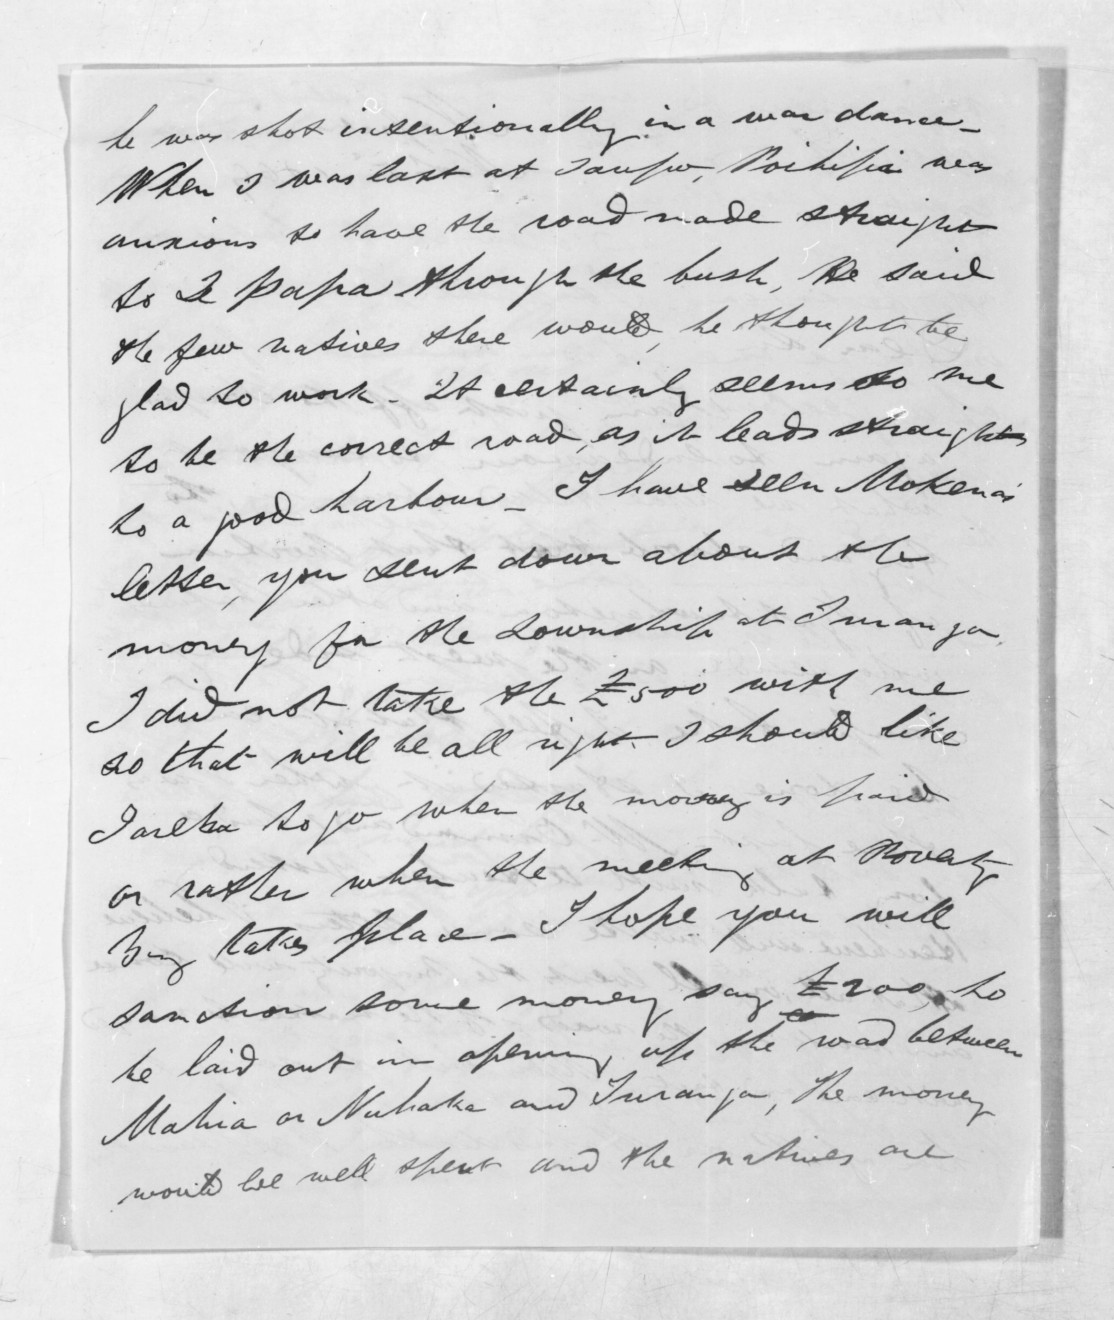 he was shot intentionally in a war dance -
When I was last at Taupo, Poihipi was
anxious to have the road made straight
to Te Papa through the bush, He said
the few natives there would, he thought be
glad to work - It certainly seems to me
to be the correct road, as it leads straight
to a good harbour - I have seen Mokena's
letter, you sent down about the
money for the township at Turanga.
I did not take the £500 with me
so that will be all right. I should like
Tareha to go when the money is paid
or rather when the meeting at Poverty
Bay takes place - I hope you will
sanction some money, say £200, to
be laid out in opening up the road between
Mahia or Nuhaka and Turanga, The money
would be well spent and the natives are